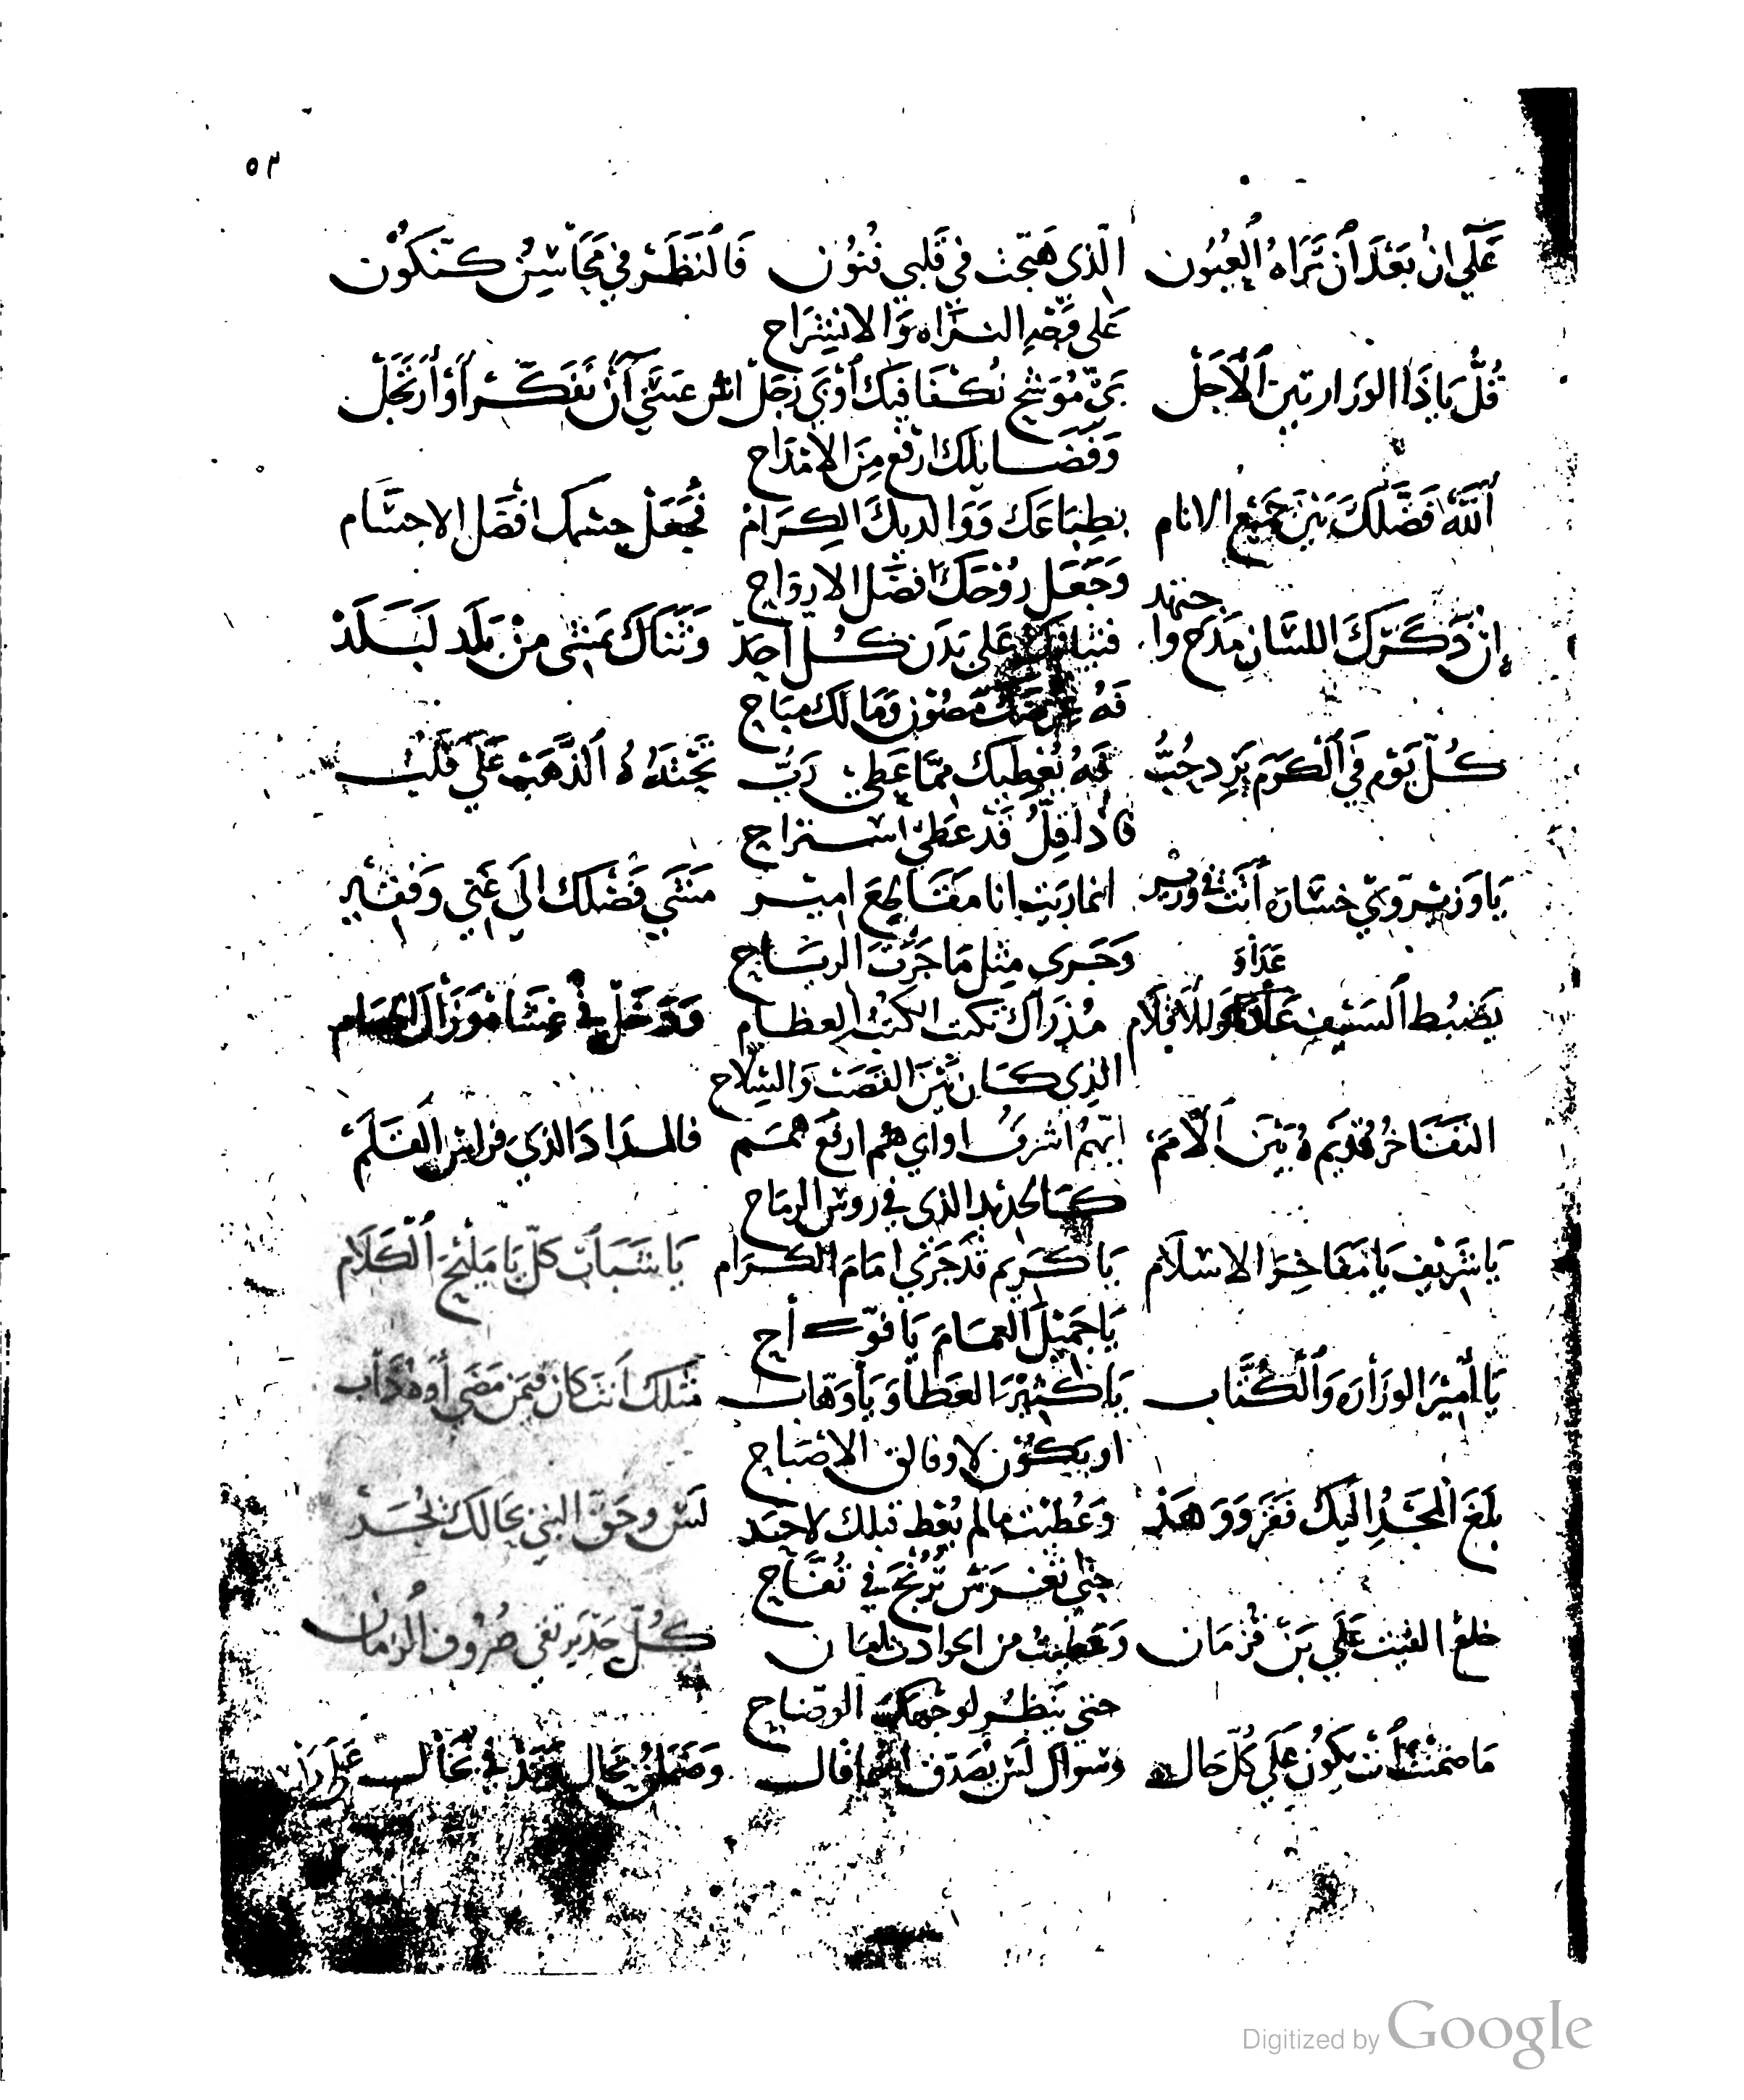 ٥٣
عَلَي ان بَعْدَ أن تَرَاهُ الْعُيُون الّذى هَيّجت في قَلبي فُنُون فَالنَظَرْ في مَحَاسِنُ كتَكُون
عَلى قَصْدِ النزاه وَالانشِرَاح
قُلّ يَاذَا الوزارتين الأَجَل بَىّ مُوَشح نُكفَا فيك أوْبَي زجَل لش عيني أن نَفَكّر أوْ ارتَجَلْ
وَفَضَايلك ارفع مِنَ الامْدَاح
اللَّه فَضَّلَكَ بَيْن جَمِيع الانام بطِبَاعَك وَوَالديكَ الكِرَامْ نجْعَلْ جسمك افضَل الاجسَام
وَنجْعَل رُوْحَكْ افضَل الارواح
إنْ ذَكَرَكَ اللسَان مَدَح وا جتهد فثيابَك عَلى بَدَن كُلّ احَدْ وَثَنَاكَ يمْشِى مِنْ بَلَد لبَلَدْ
فَهُ عرضَك مَصُوْن وَمَالك مبَاح
كُلّ يَوْم في الْكرَم يَزِد حُبُّ فهُ يُعْطِيك ممّا عَطى رَبُّ تجْتَدهُ الذَّهَبْ عَلَى قَلْبُ
فاذا قِلُّ قَدْ عَطِيْ استراح
يَا وَزيْر وَيّ خسَارَه أنْتَ في وزير انما ريْت انا مَقَاطِعَ امير مَشَي فَضْلك الَى غَنِي وَفقْيِر
وَجَرى مِثل مَا جَرَتْ الريَاح
يَضبُط السَيْف عَدَاوَ للاقْلَام مُذ رَاك تكتب الكتُب العظام وَدَخَلّ في غشَامُوْ زَال الخصَام
الذِى كَان بَيْنَ القصَبْ وَالسِلَاح
التفَاخر قَدِيم هُ بَيْنَ الامَمْ ايّهُم اشرَف او اي هُم ارفَع همَم فالمدَادَ الذيَ فراسْ القَلَمْ
كالحَديد الذى في روس الرمَاح
يَا شَرِيْف يَا مَفَاخِرَ الاسْلَام يَا كَريم قَد جَرَيْ امَامَ الكرَام يَا شَبَابْ كلّ يَا مَلِيْح الْكَلَام
يَا جَمِيْل العمَامَ يَا قوّ أح
يَا أمِيْر الوزَارَه وَالْكُتَّاب يَا كَثِيْرَ العَطا وَيَا وَهّاب مَتلك أنتَ كان فيمَن مَضَى
او يكُوْن لا وفالق الاصبَاح
بَلَغَ المجْدُ اليك فقَزْ وَوَهَدْ وَعُطيْتَ مالم يُعْط قبلك لاحَد لَسْ وحَقّ النبي
حتي تغرَسْ تُرُنْجَ في تُفّاح
خلعْ الغيث عَلَي بَنْ قُزْمَان كُلّ جَدّ صُرُوف الزمان
حتي يَنظرْ لوَجهكَ الوضاح
مَا ضمنت أنت يكُوْن عَلَي كُلّ حَال وسوَاك لَسْ يُصَدّق